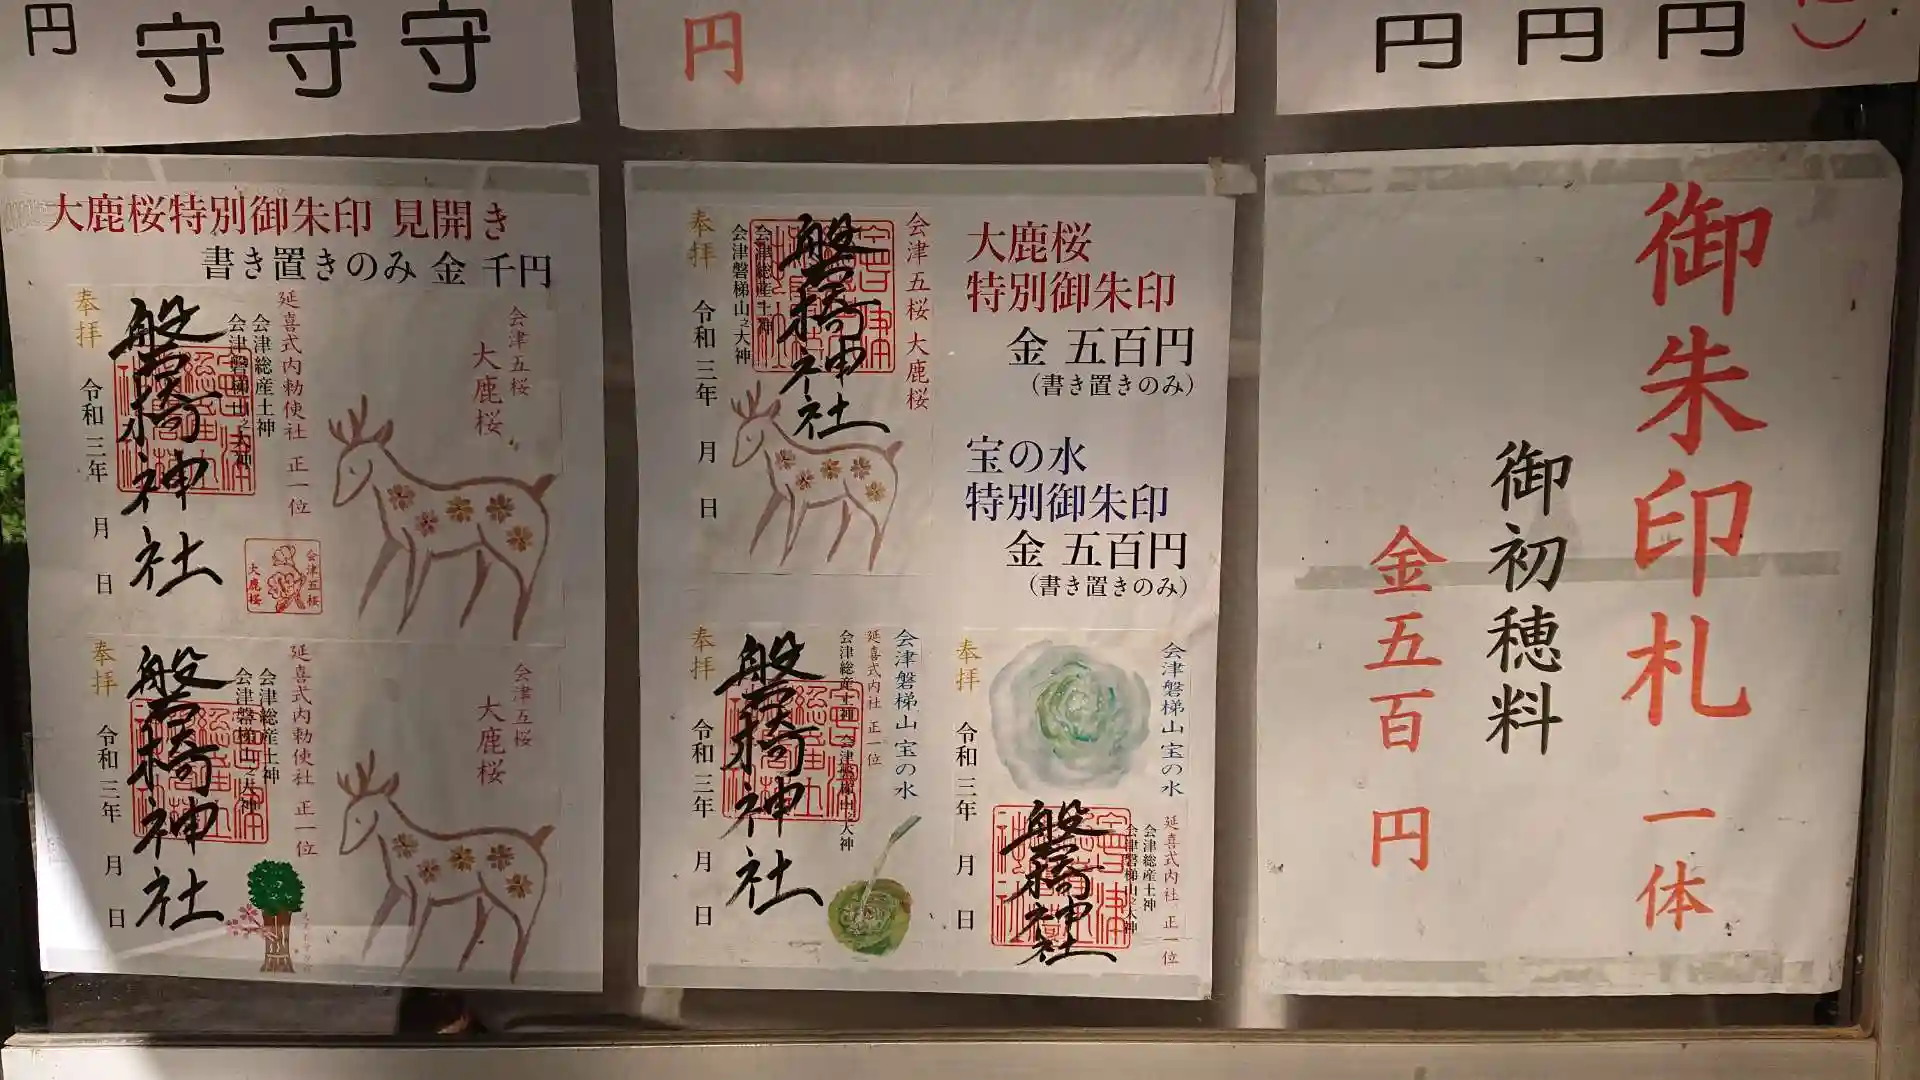 円
守
守
守
円
円
円
円
大鹿桜特別御朱印 見開き
書き置きのみ 金 千円
会津五桜
大鹿桜
延喜式内勅使社 正一位
会津総産土神
会津磐梯山之大神
磐椅神社
奉拝
令和三年 月 日
会津五桜
大鹿桜
会津五桜
大鹿桜
延喜式内勅使社 正一位
会津総産土神
会津磐梯山之大神
磐椅神社
奉拝
令和三年 月 日
大鹿桜
特別御朱印
金 五百円
(書き置きのみ)
宝の水
特別御朱印
金 五百円
(書き置きのみ)
会津五桜 大鹿桜
磐椅神社
会津総産土神
会津磐梯山之大神
奉拝
令和三年 月 日
会津磐梯山 宝の水
延喜式内社 正一位
会津総産土神 会津磐梯山之大神
磐椅神社
奉拝
令和三年 月 日
会津磐梯山 宝の水
延喜式内社 正一位
会津総産土神
会津磐梯山之大神
磐椅神社
奉拝
令和三年 月 日
御朱印札 一体
御初穂料
金五百円